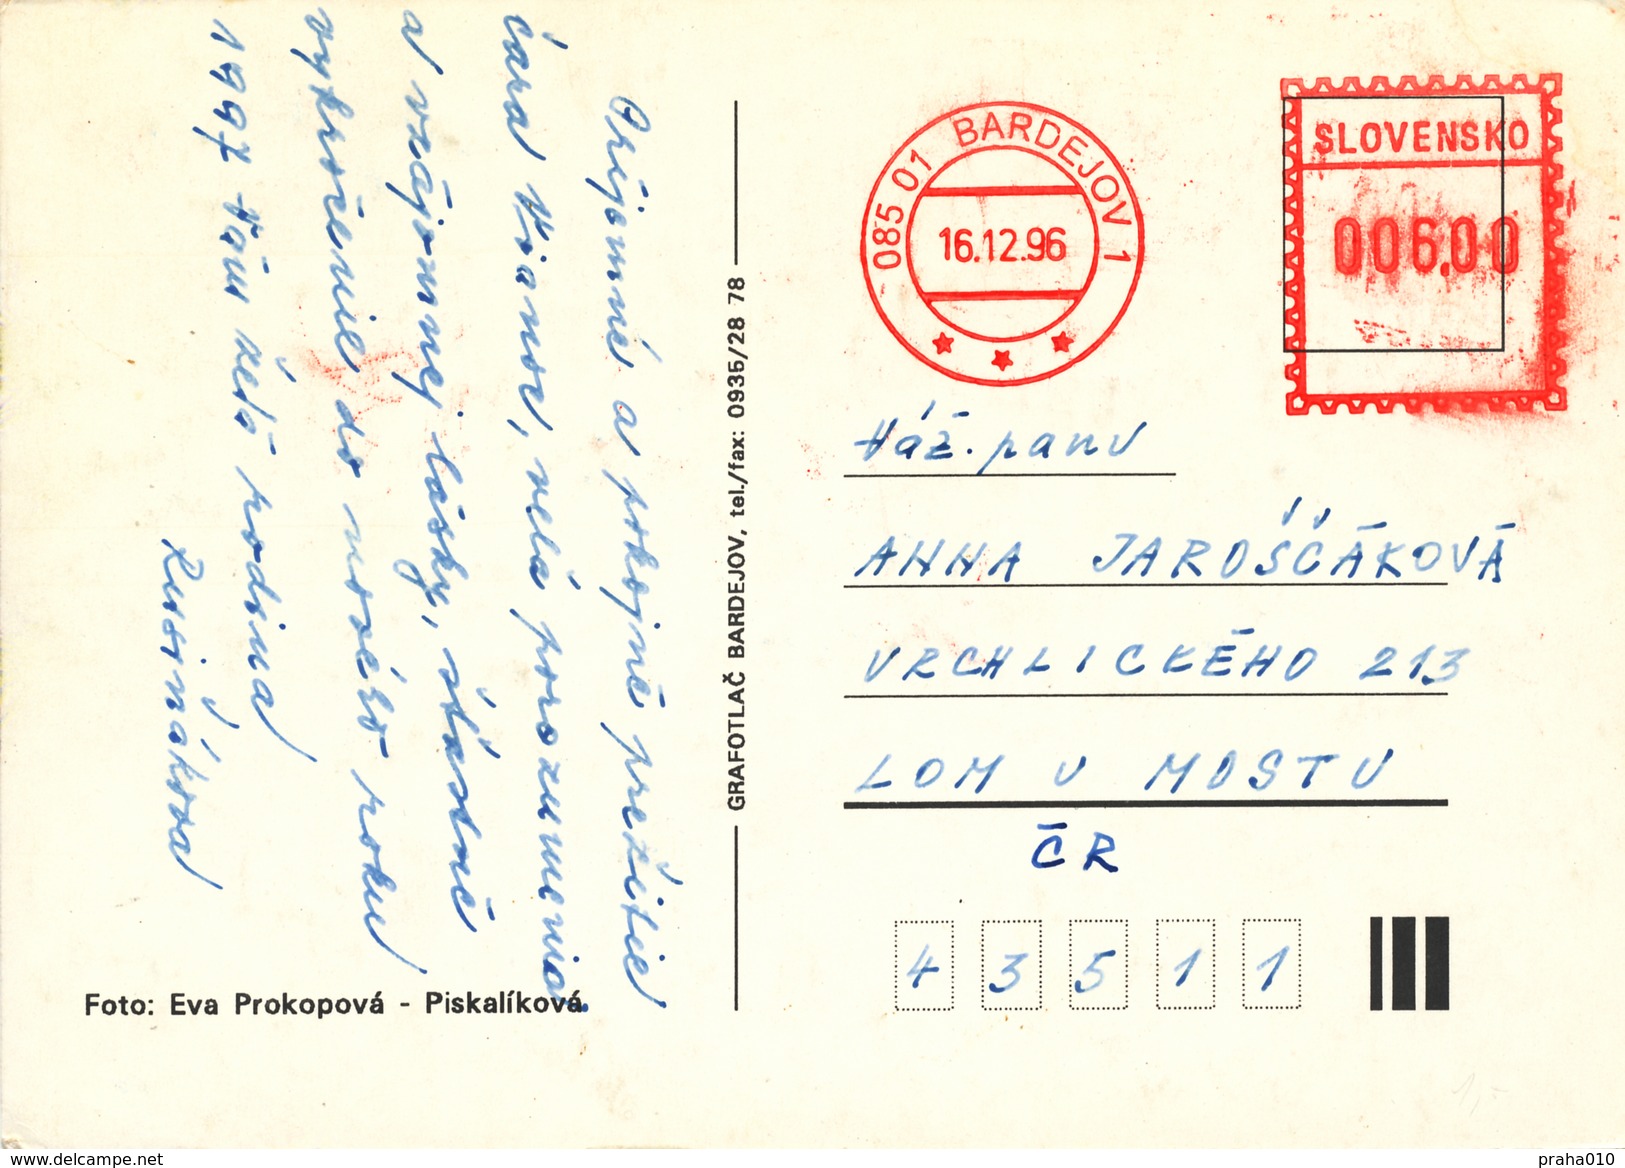 Príjemné a pokojné prežitie
čara Vianoc, veľa porozumenia
a vzájomnej lásky, šťastné
vykročenie do nového roku
1997 Vám želá rodina
Rusinákova
Foto: Eva Prokopová - Piskalíková
GRAFOTLAČ BARDEJOV, tel./fax: 0935/28 78
085 01 BARDEJOV 1
16.12.96
SLOVENSKO
006,00
Váž. panu
ANNA JAROŠČÁKOVÁ
VRCHLICKÉHO 213
LOM U MOSTU
ČR
4 3 5 1 1
1,-
www.delcampe.net
praha010